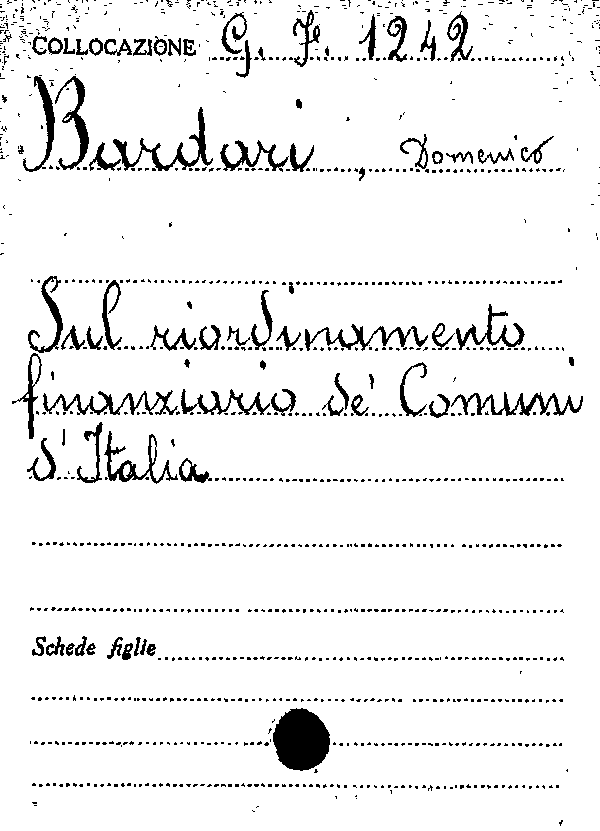 COLLOCAZIONE G. F. 1242
Bardari, Domenico
Sul riordinamento
finanziario de' Comuni
d'Italia
Schede figlie